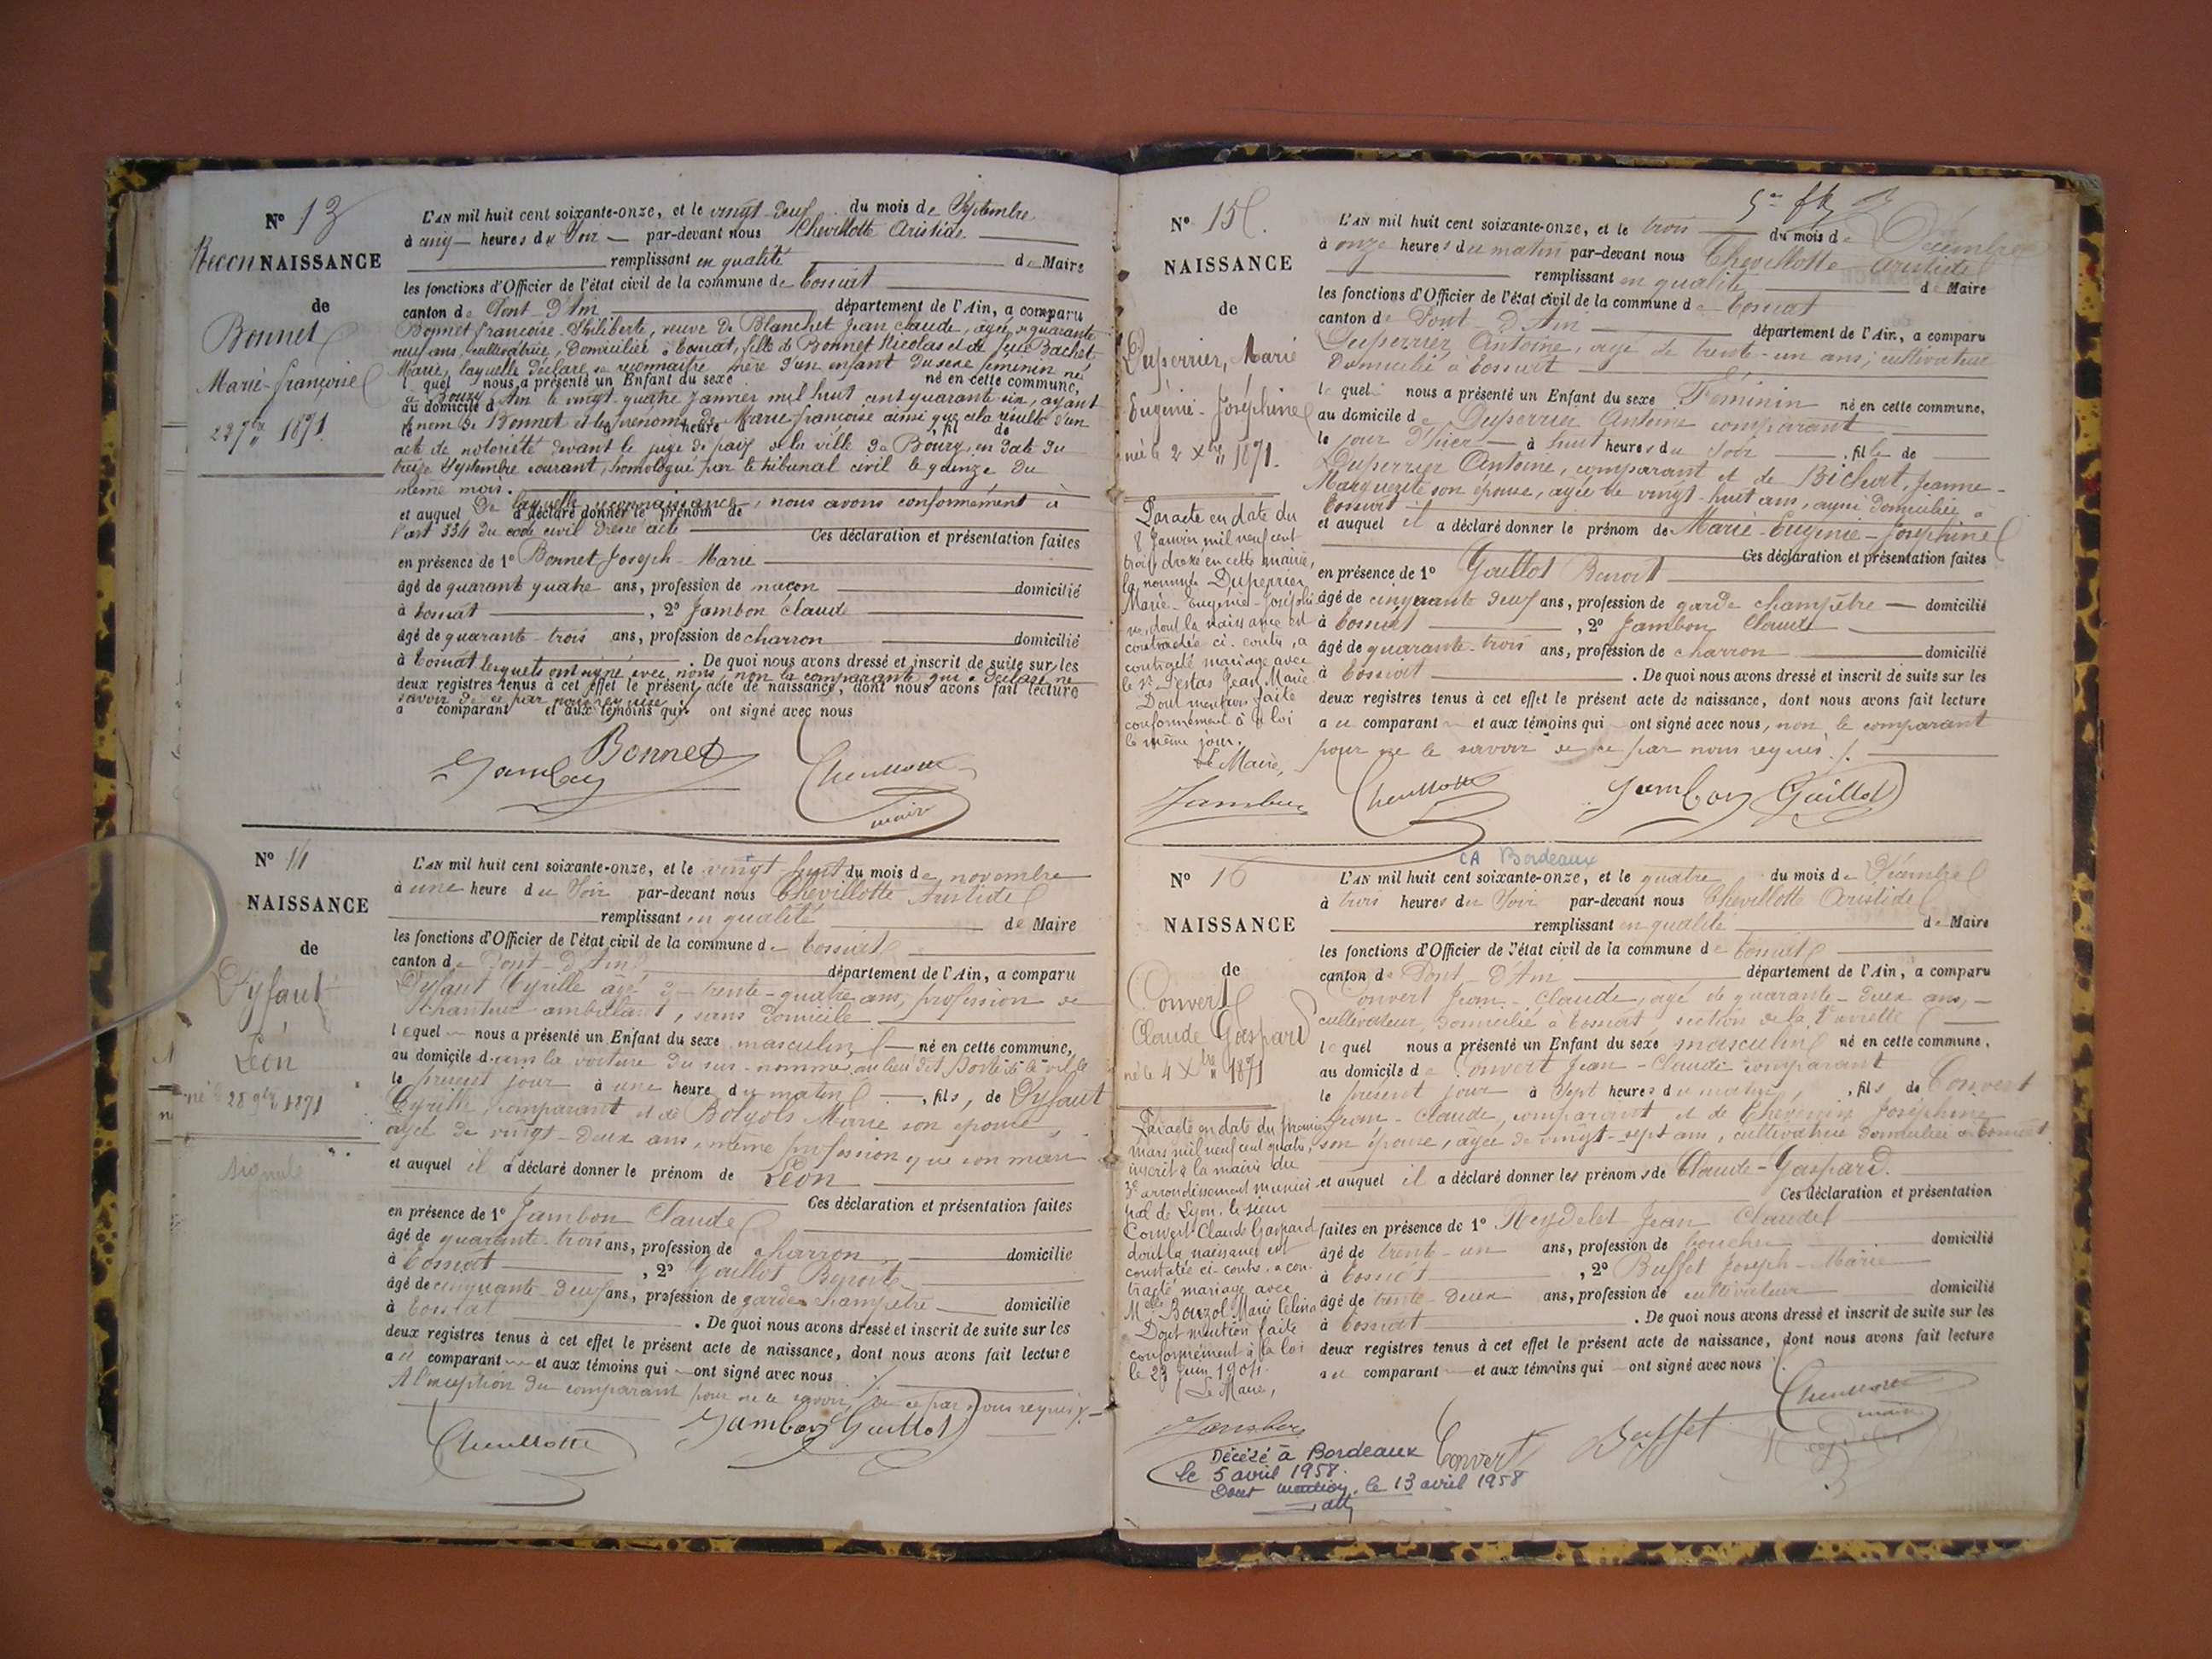 N° 13
ReconNAISSANCE
de
Bonnet
Marie-françoise
1871
L'AN mil huit cent soixante-onze, et le vingt-deux du mois de Septembre
à cinq heures du Soir par-devant nous Chevillotte Aristide
remplissant en qualité de Maire
les fonctions d'Officier de l'état civil de la commune de
canton de Pont-d'Ain département de l'Ain, a comparu
Bonnet françoise-Philiberte, veuve de Blanchet Jean Claude, agée de quarante
neuf ans, cultivatrice, domiciliée à fille de Bonnet Nicolas et de feue Bachet
Marie, laquelle déclare se reconnaitre mère d'un enfant du sexe féminin né
l quel nous a présenté un Enfant du sexe né en cette commune,
à Bourg Ain le vingt-quatre janvier mil huit cent quarante six, ayant
au domicile d
le nom de Bonnet et les prénoms de Marie françoise ainsi que cela résulte d'un
heure fil de
acte de notoriété devant le juge de paix de la ville de Bourg, en date du
treize Septembre courant, homologué par le tribunal civil le quinze du
même mois.
De laquelle reconnaissance, nous avons conformément à
et auquel a déclaré donner le prénom de
l'art 334 du code civil dressé acte Ces déclaration et présentation faites
en présence de 1° Bonnet Joseph-Marie
âgé de quarant quatre ans, profession de maçon domicilié
à , 2° Jambon Claude
âgé de quarante-trois ans, profession de charron domicilié
à lesquels ont signé avec nous, non la comparante qui a déclaré ne . De quoi nous avons dressé et inscrit de suite sur les
deux registres tenus à cet effet le présent acte de naissance, dont nous avons fait lecture
savoir de ce par nous requise
a comparant et aux témoins qui ont signé avec nous
Bonnet
Jambon Chevillotte
maire
N° 14
NAISSANCE
de
Dyfaut
Léon
né 28 9bre 1871
Signalé
L'AN mil huit cent soixante-onze, et le vingt-huit du mois de novembre
à une heure du Soir par-devant nous Chevillotte Aristide
remplissant en qualité de Maire
les fonctions d'Officier de l'état civil de la commune de
canton de Pont-d'Ain département de l'Ain, a comparu
Dyfaut Cyrille agé de trente-quatre ans, profession de
chanteur ambulant, sans domicile
lequel nous a présenté un Enfant du sexe masculin né en cette commune,
au domicile dans la voiture du sus-nommé au lieu dit
le présent jour à une heure du matin , fils, de Dyfaut
Cyrille comparant et de Marie son épouse,
agée de vingt-deux ans, même profession que son mari
et auquel il a déclaré donner le prénom de Léon
Ces déclaration et présentation faites
en présence de 1° Jambon Claude
âgé de quarante-trois ans, profession de charron domicilié
à , 2° Guillot Benoit
âgé de cinquante-deux ans, profession de garde champêtre domicilié
à . De quoi nous avons dressé et inscrit de suite sur les
deux registres tenus à cet effet le présent acte de naissance, dont nous avons fait lecture
au comparant et aux témoins qui ont signé avec nous
A l'exception du comparant pour ne le savoir, de ce par nous requis
Chevillotte Jambon Guillot
N° 15
NAISSANCE
de
Duperrier, Marie
Eugénie-Joséphine
née le 2 Xbre 1871.
Par acte en date du
8 Janvier mil neuf cent
trois dressé en cette mairie,
la nommée Duperrier
Marie-Eugénie-Joséphi-
ne, dont la naissance est
constatée ci-contre, a
contracté mariage avec
le Sr Jean Marie
Dont mention faite
conformément à la loi
le même jour.
Le Maire,
Jambon
L'AN mil huit cent soixante-onze, et le trois du mois de Décembre
à onze heures du matin par-devant nous Chevillotte Aristide
remplissant en qualité de Maire
les fonctions d'Officier de l'état civil de la commune de
canton de Pont-d'Ain département de l'Ain, a comparu
Duperrier Antoine, agé de trente-un ans, cultivateur
domicilié à
le quel nous a présenté un Enfant du sexe Féminin né en cette commune,
au domicile de Duperrier Antoine comparant
le jour d'hier à huit heures du soir , fille de
Duperrier Antoine, comparant et de Bichat, Jeanne-
Marguerite son épouse, agée de vingt-huit ans, aussi domiciliée à
et auquel il a déclaré donner le prénom de Marie-Eugénie-Joséphine
Ces déclaration et présentation faites
en présence de 1° Guillot Benoit
âgé de cinquante deux ans, profession de garde champêtre domicilié
à , 2° Jambon Claude
âgé de quarante-trois ans, profession de charron domicilié
à . De quoi nous avons dressé et inscrit de suite sur les
deux registres tenus à cet effet le présent acte de naissance, dont nous avons fait lecture
au comparant et aux témoins qui ont signé avec nous, non le comparant
pour ne le savoir de ce par nous requis.
Chevillotte Jambon Guillot
CA Bordeaux
N° 16
NAISSANCE
de
Convert
Claude Gaspard
né le 4 Xbre 1871
Par acte en date du premier
mars mil neuf cent quatre,
inscrit à la mairie du
3e arrondissement munici-
pal de Lyon, le sieur
Convert Claude Gaspard
dont la naissance est
constatée ci-contre, a con-
tracté mariage avec
Melle Bouzol Marie Célina
Dont mention faite
conformément à la loi
le 23 Juin 1904.
Le Maire,
Jambon
Décédé à Bordeaux
le 5 avril 1958.
Dont mention, le 13 avril 1958
L'AN mil huit cent soixante-onze, et le quatre du mois de Décembre
à trois heures du Soir par-devant nous Chevillotte Aristide
remplissant en qualité de Maire
les fonctions d'Officier de l'état civil de la commune de
canton de Pont-d'Ain département de l'Ain, a comparu
Convert Jean-Claude, agé de quarante-deux ans,
cultivateur, domicilié à section de la
le quel nous a présenté un Enfant du sexe masculin né en cette commune,
au domicile de Convert Jean-Claude comparant
le présent jour à sept heures du matin, , fils de Convert
Jean-Claude, comparant et de Joséphine
son épouse, agée de vingt-sept ans, cultivatrice domiciliée à
et auquel il a déclaré donner les prénoms de Claude-Gaspard.
Ces déclaration et présentation
faites en présence de 1° Reydelet Jean Claude
âgé de trente-un ans, profession de boucher domicilié
à , 2° Buffet Joseph-Marie
âgé de trente-deux ans, profession de cultivateur domicilié
à . De quoi nous avons dressé et inscrit de suite sur les
deux registres tenus à cet effet le présent acte de naissance, dont nous avons fait lecture
au comparant et aux témoins qui ont signé avec nous
Chevillotte
maire
Convert Buffet Reydelet